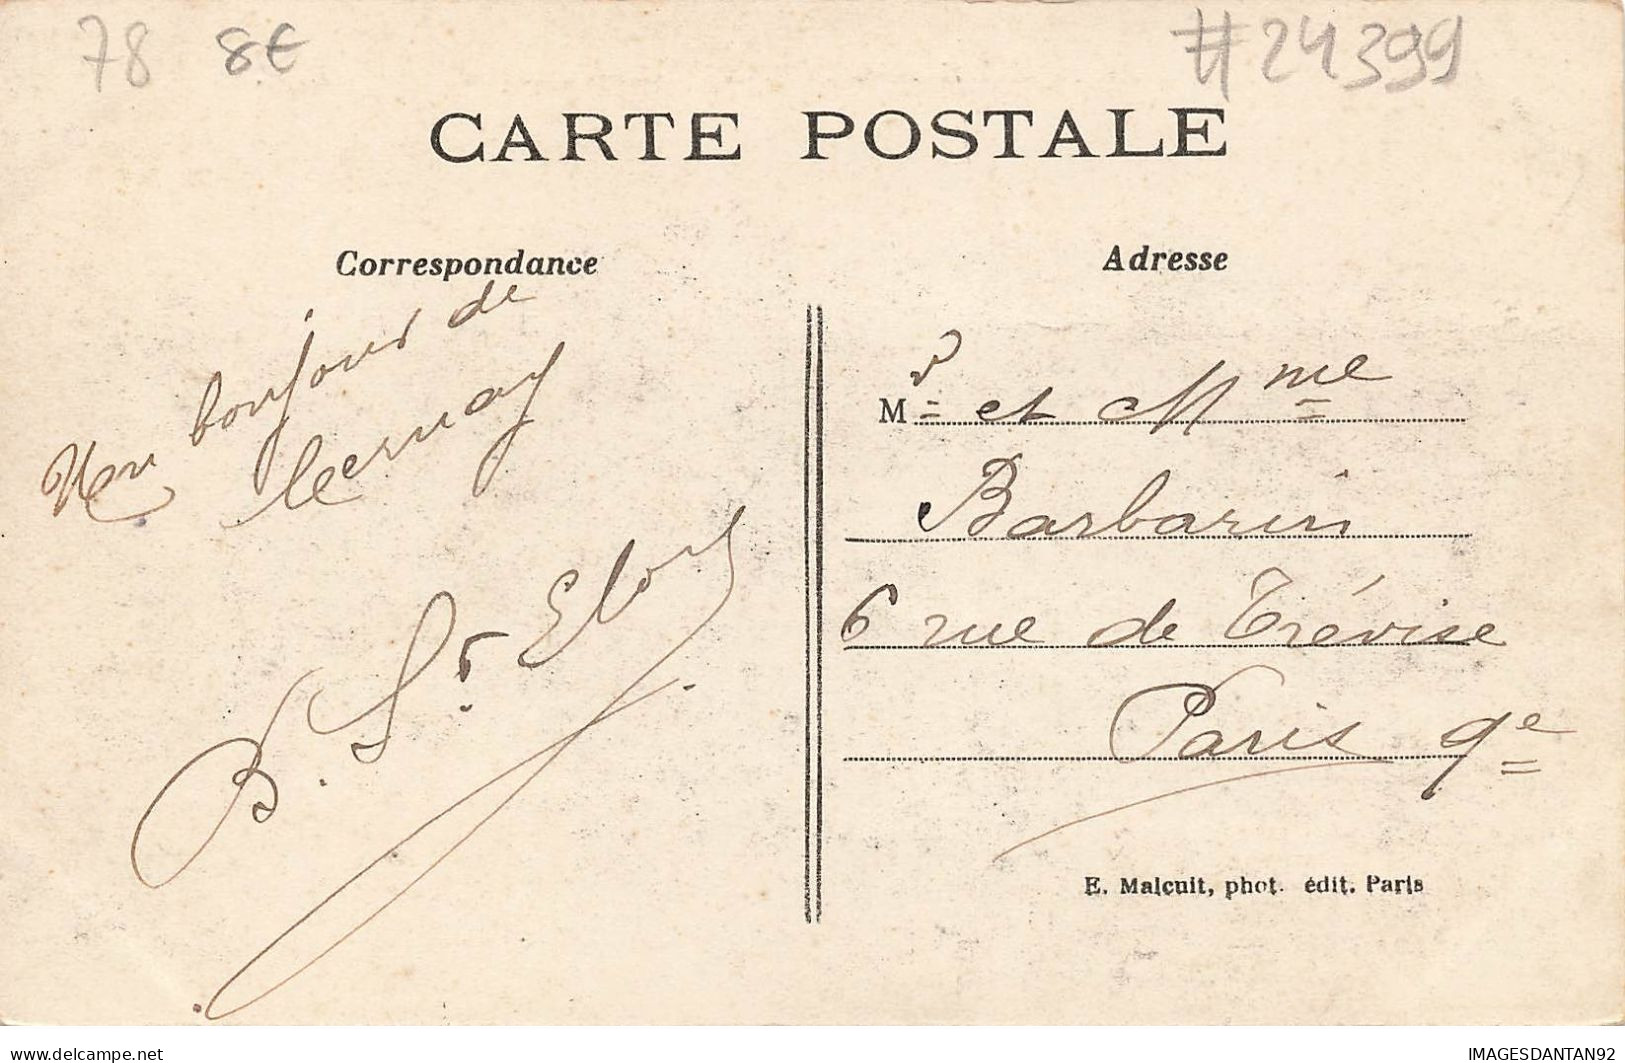 78 8€ #24399
CARTE POSTALE
Correspondance
Un bonjour de
Cernay
B. St Eloy
Adresse
Mr et Mme
Barbarin
6 rue de Trévise
Paris 9e
E. Malcuit, phot. édit. Paris
www.delcampe.net
IMAGESDANTAN92